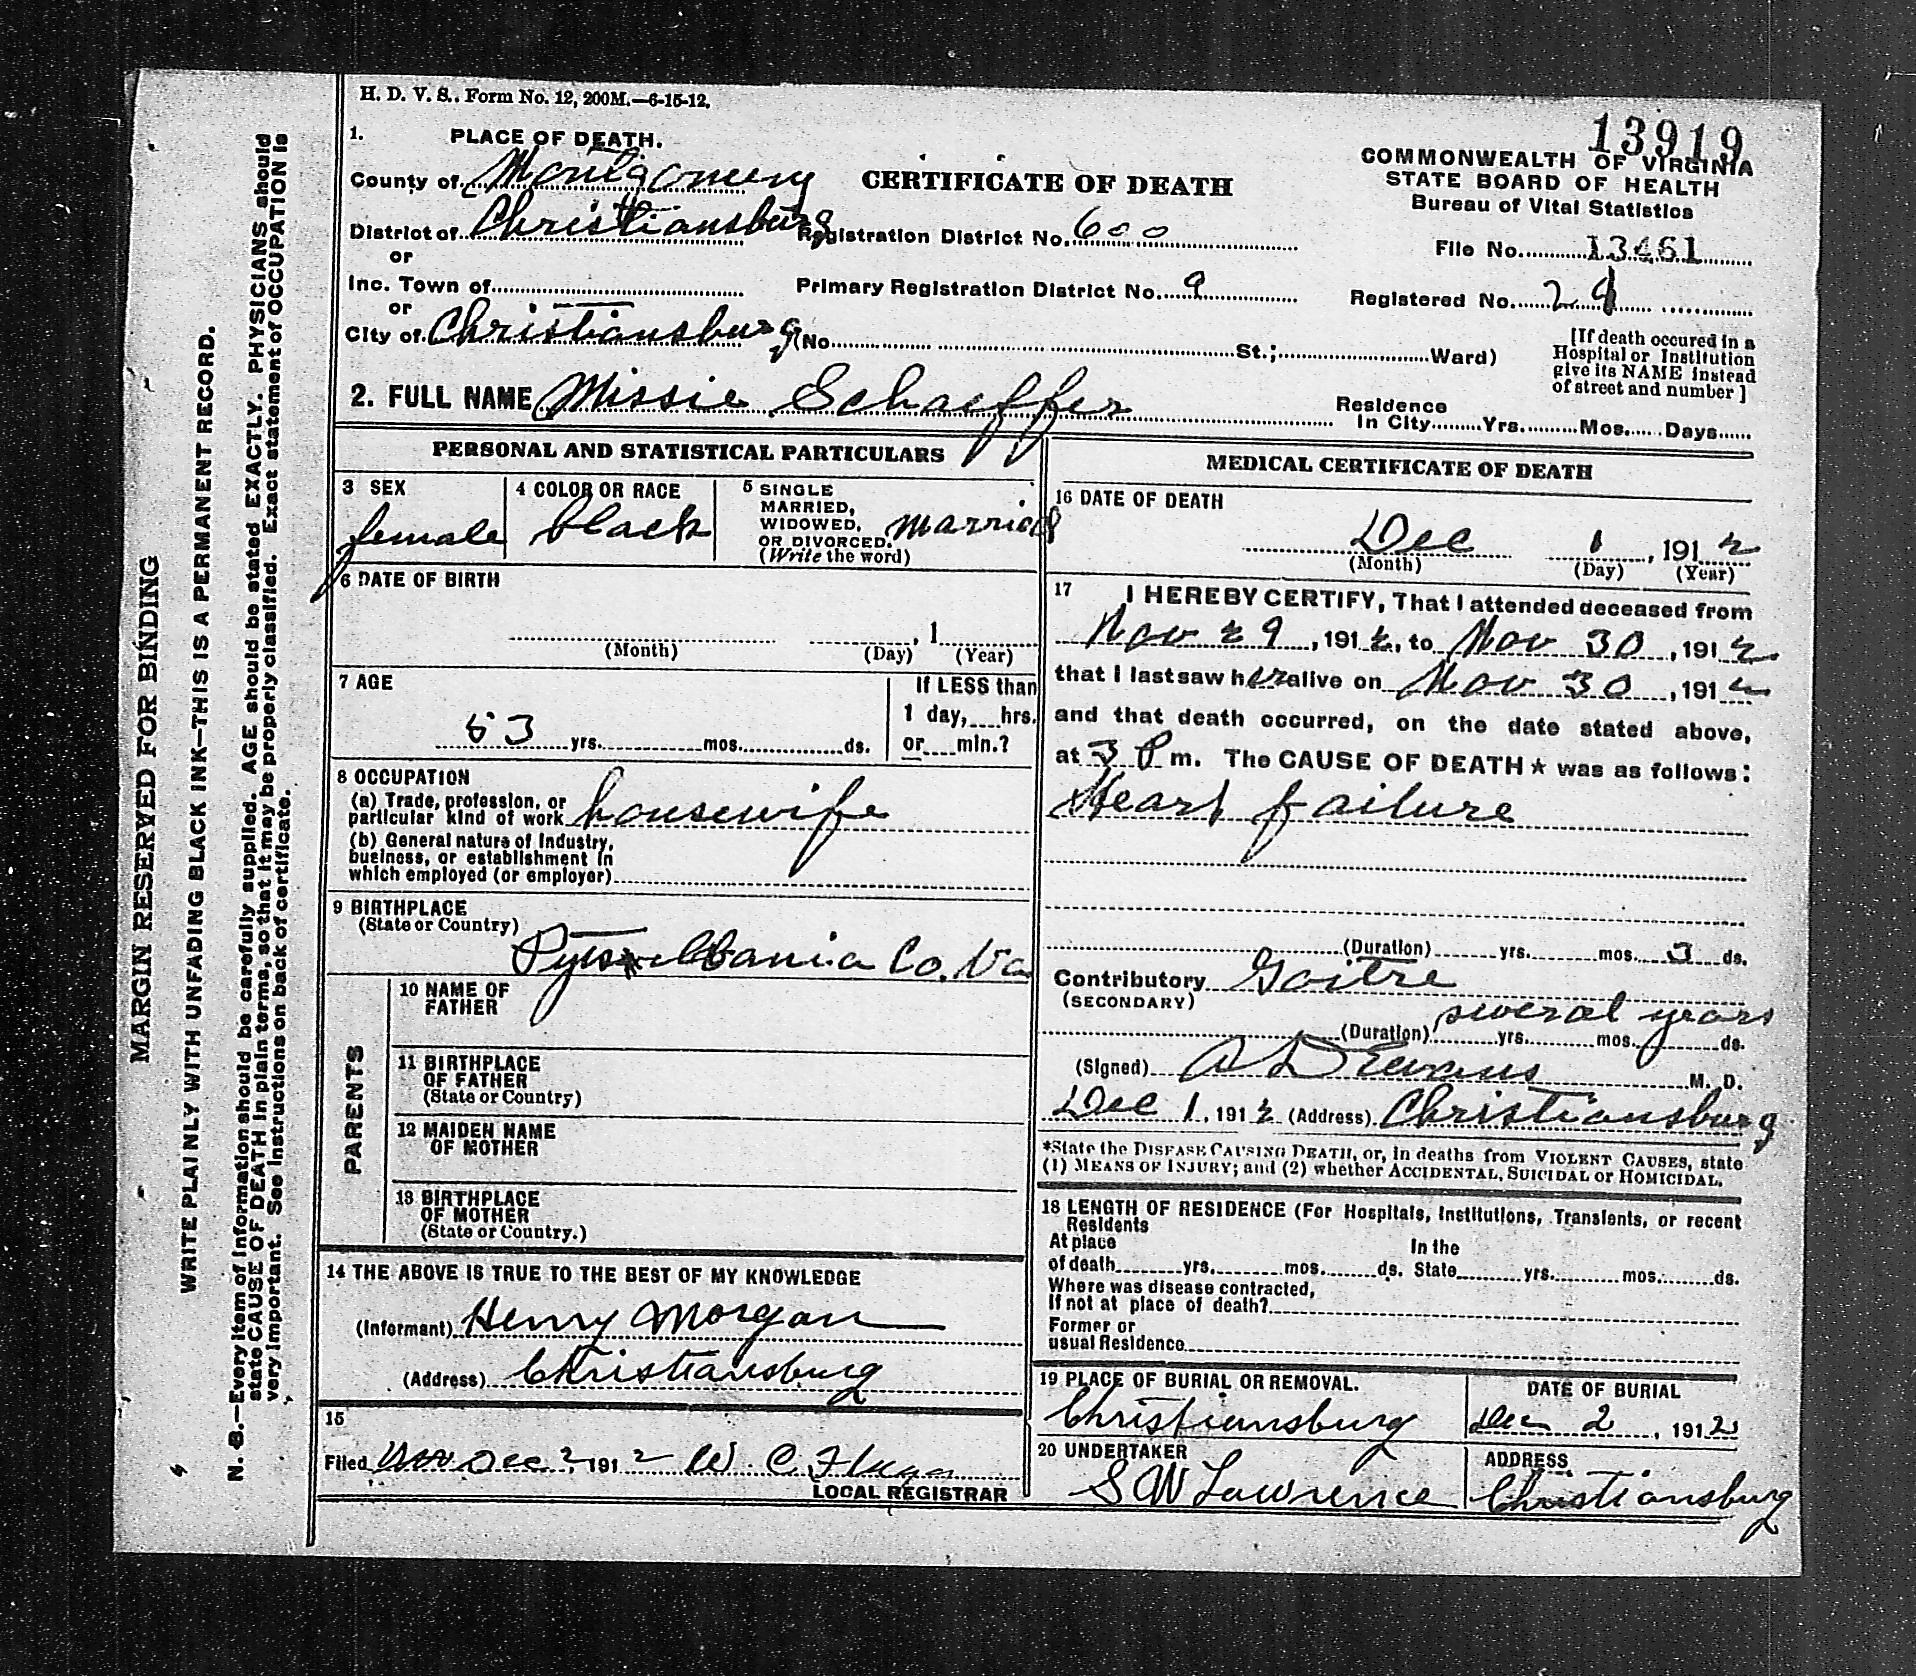 H. D. V. S., Form No. 12, 200M.—6-15-12.
13919
1. PLACE OF DEATH.
County of Montgomery
CERTIFICATE OF DEATH
COMMONWEALTH OF VIRGINIA
STATE BOARD OF HEALTH
Bureau of Vital Statistics
District of Christiansburg
Registration District No. 600
File No. 13461
or
Inc. Town of
Primary Registration District No. 9
Registered No. 29
or
City of Christiansburg (No. St.; Ward)
[If death occured in a
Hospital or Institution
give its NAME instead
of street and number]
2. FULL NAME Missie Schaeffer
Residence
In City Yrs. Mos. Days
PERSONAL AND STATISTICAL PARTICULARS
3 SEX
female
4 COLOR OR RACE
black
5 SINGLE
MARRIED,
WIDOWED,
OR DIVORCED.
(Write the word)
married
6 DATE OF BIRTH
, 1
(Month) (Day) (Year)
7 AGE
53 yrs. mos. ds.
If LESS than
1 day, hrs.
or min.?
8 OCCUPATION
(a) Trade, profession, or
particular kind of work housewife
(b) General nature of Industry,
business, or establishment in
which employed (or employer)
9 BIRTHPLACE
(State or Country)
Co. Va
PARENTS
10 NAME OF
FATHER
11 BIRTHPLACE
OF FATHER
(State or Country)
12 MAIDEN NAME
OF MOTHER
13 BIRTHPLACE
OF MOTHER
(State or Country.)
14 THE ABOVE IS TRUE TO THE BEST OF MY KNOWLEDGE
(Informant) Henry Morgan
(Address) Christiansburg
15
Filed Dec 2, 1912 W. C.
LOCAL REGISTRAR
MEDICAL CERTIFICATE OF DEATH
16 DATE OF DEATH
Dec 1, 1912
(Month) (Day) (Year)
17 I HEREBY CERTIFY, That I attended deceased from
Nov 29, 1912, to Nov 30, 1912
that I last saw her alive on Nov 30, 1912
and that death occurred, on the date stated above,
at 3 P m. The CAUSE OF DEATH * was as follows:
Heart failure
(Duration) yrs. mos. 3 ds.
Contributory Goitre
(SECONDARY)
several years
(Duration) yrs. mos. ds.
(Signed) A D Evans M. D.
Dec 1, 1912 (Address) Christiansburg
*State the DISEASE CAUSING DEATH, or, in deaths from VIOLENT CAUSES, state
(1) MEANS OF INJURY; and (2) whether ACCIDENTAL, SUICIDAL or HOMICIDAL.
18 LENGTH OF RESIDENCE (For Hospitals, Institutions, Transients, or recent
Residents
At place In the
of death yrs. mos. ds. State yrs. mos. ds.
Where was disease contracted,
If not at place of death?
Former or
usual Residence
19 PLACE OF BURIAL OR REMOVAL.
Christiansburg
DATE OF BURIAL
Dec 2, 1912
20 UNDERTAKER
S W Lawrence
ADDRESS
Christiansburg
MARGIN RESERVED FOR BINDING
WRITE PLAINLY WITH UNFADING BLACK INK—THIS IS A PERMANENT RECORD.
N. B.—Every item of information should be carefully supplied. AGE should be stated EXACTLY. PHYSICIANS should
state CAUSE OF DEATH in plain terms, so that it may be properly classified. Exact statement of OCCUPATION is
very important. See instructions on back of certificate.